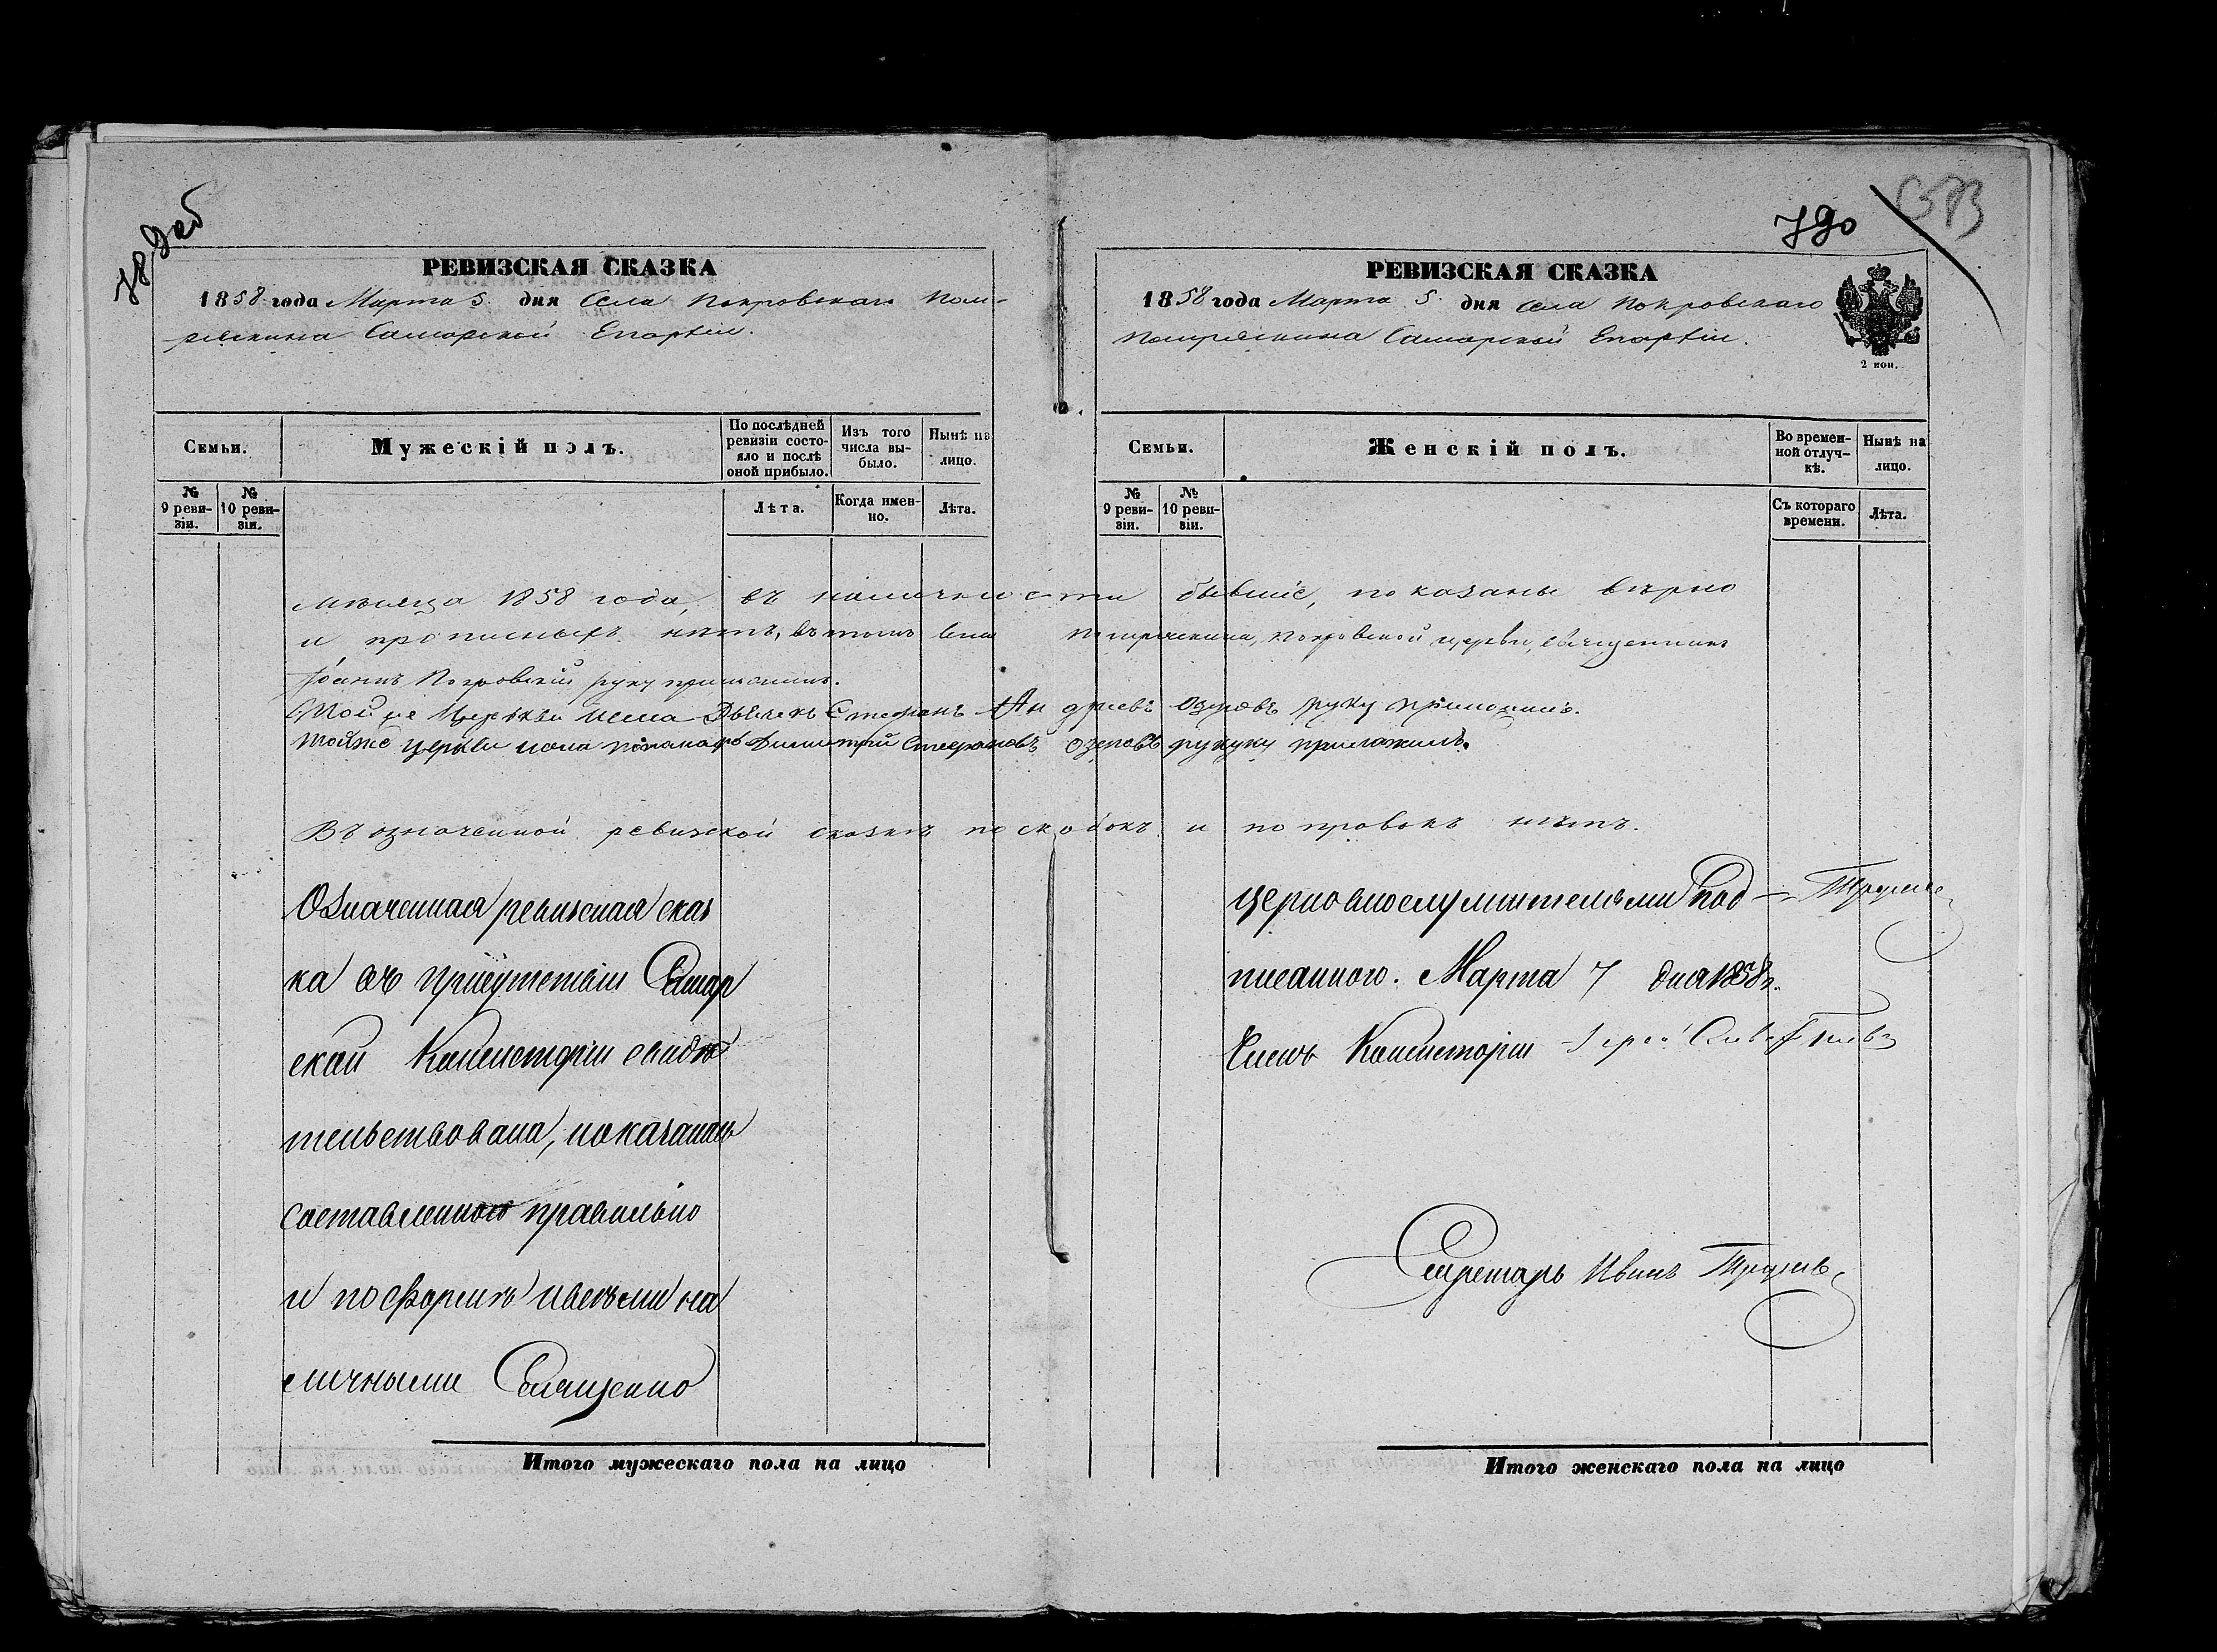 789 об
790
РЕВИЗСКАЯ СКАЗКА
1858 года Марта 5. дня Села Покровскаго Пот-
Самарской Епархіи.
Семьи.
Мужескій полъ.
По послѣдней ревизіи состо-яло и послѣ оной прибыло.
Изъ того числа вы-было.
Нынѣ на лицо.
№ 9 реви-зіи.
№ 10 реви-зіи.
Лѣта.
Когда имен-но.
Лѣта.
РЕВИЗСКАЯ СКАЗКА
1858 года Марта 5. дня Села Покровскаго
Самарской Епархіи.
2 коп.
Семьи.
Женскій полъ.
Во времен-ной отлуч-кѣ.
Нынѣ на лицо.
№ 9 реви-зіи.
№ 10 реви-зіи.
Съ котораго времени.
Лѣта.
мѣсяца 1858 года, въ наличности бывшіе, показаны вѣрно
и прописныхъ нѣтъ, въ томъ Покровской церкви, священникъ
Іоаннъ Покровскій руку приложилъ.
Той же Церкви Дьячекъ Стефанъ Андреевъ Озеровъ руку приложилъ.
Тойже церкви пономарь Димитрій Стефановъ Озеровъ рукуку приложилъ.
Въ означенной ревизской сказкѣ поскобокъ и поправокъ нѣтъ.
Означенная ревизская сказ
ка въ присутствіи Самар
ской Консисторіи свидѣ
тельствована, показана
составленною правильно
и по формѣ и всѣми на
личными Священно
церковнослужителями Под
писанною. Марта 7 дня 1858 г.
Членъ Консисторіи Іерей
Секретарь Иванъ
Итого мужескаго пола на лицо
Итого женскаго пола на лицо